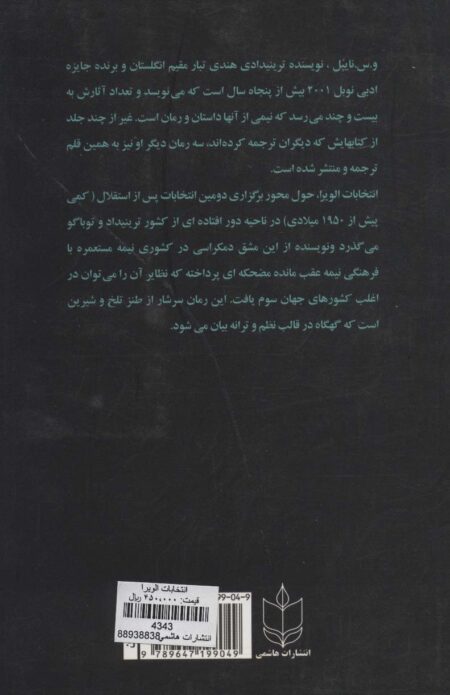 و.س.نایپل ، نویسنده ترینیدادی هندی تبار مقیم انگلستان و برنده جایزه
ادبی نوبل ۲۰۰۱ بیش از پنجاه سال است که می نویسد و تعداد آثارش به
بیست و چند می رسد که نیمی از آنها داستان و رمان است. غیر از چند جلد
از کتابهایش که دیگران ترجمه کرده‌اند، سه رمان دیگر او نیز به همین قلم
ترجمه و منتشر شده است.
انتخابات الویرا، حول محور برگزاری دومین انتخابات پس از استقلال ( کمی
پیش از ۱۹۵۰ میلادی) در ناحیه دور افتاده ای از کشور ترینیداد و توباگو
می گذرد ونویسنده از این مشق دمکراسی در کشوری نیمه مستعمره با
فرهنگی نیمه عقب مانده مضحکه ای پرداخته که نظایر آن را می‌توان در
اغلب کشورهای جهان سوم یافت. این رمان سرشار از طنز تلخ و شیرین
است که گهگاه در قالب نظم و ترانه بیان می شود.
99-04-9
انتخابات الویرا
قیمت: ۳۵۰,۰۰۰ ریال
4343
انتشارات هاشمی 88938838
9 789647 199049
انتشارات هاشمی